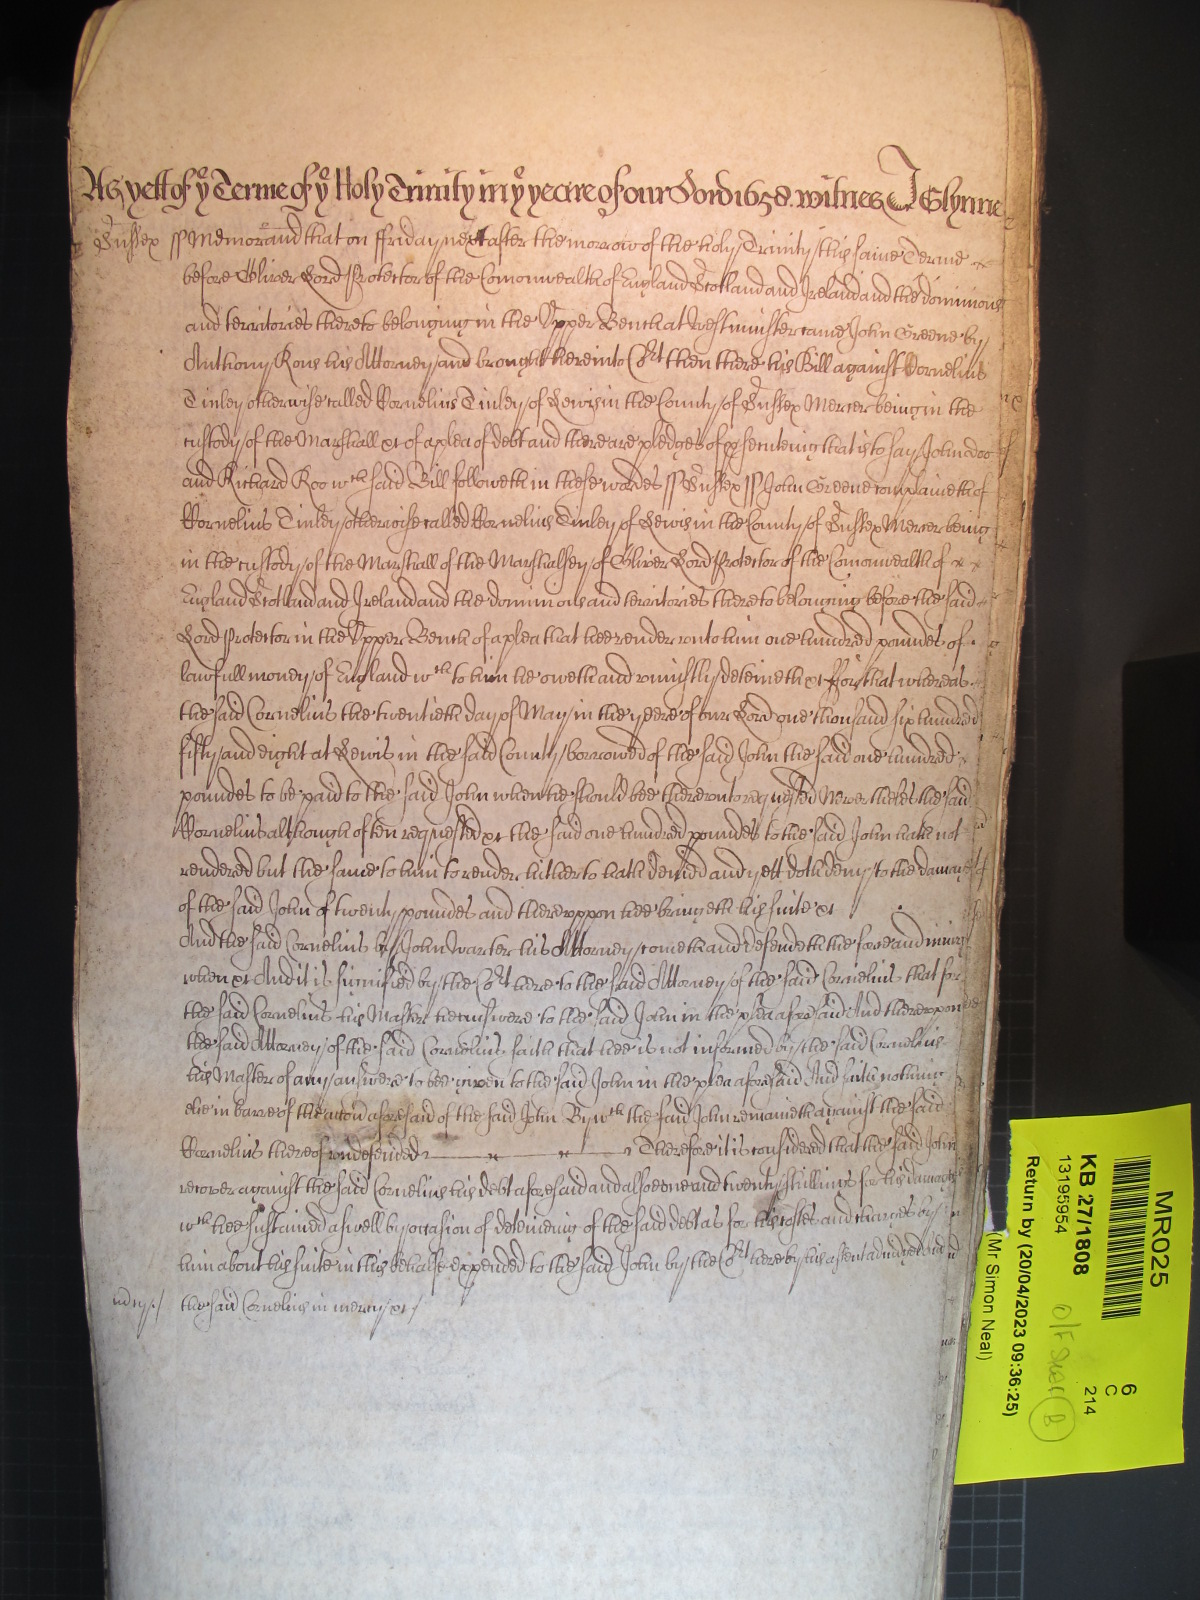 As yett of yͤ Terme of yͤ Holy Trinity in yͤ yeare of our Lord 1658. witnes J Glynne
Sussex ss Memorand that on ffriday next after the morrow of the holy Trinity this same Terme
before Oliver Lord Protector of the Comonwealth of England Scotland and Ireland and the dominions
and territories thereto belonging in the Upper Bench at Westminster came John Greene by
Anthony Rous his Attorney and brought here into Cort then there his Bill against Cornelius
Tinley otherwise called Cornelius Tinley of Lewis in the County of Sussex Mercer being in the
custody of the Marshall xt of a plea of debt and there are pledges of psecuteing that is to say John doo
and Richard Roo wᵗʰ said Bill followeth in these wordes ss Sussex ss John Greene complaineth of
Cornelius Tinley otherwise called Cornelius Tinley of Lewis in the County of Sussex Mercer being
in the custody of the Marshall of the Marshalsey of Oliver Lord Protector of the Comonwealth of
England Scotland and Ireland and the dominions and territories thereto belonging before the said
Lord Protector in the Upper Bench of a plea that hee render unto him one hundred poundes of
lawfull money of England wᵗʰ to him he oweth and uniustly deteineth xt ffor that whereas
the said Cornelius the twentieth day of May in the yeere of our Lord one thousand six hundred
fifty and eight at Lewis in the said County borrowed of the said John the said one hundred
poundes to be paid to the said John when he should bee thereunto requested Neverthelesse the said
Cornelius although often requested xt the said one hundred poundes to the said John hath not
rendered but the same to him to render hitherto hath denied and yett doth deny to the damage
of the said John of twenty poundes and thereuppon hee bringeth his suite xt
And the said Cornelius by John Warter his Attorney cometh and defendeth the force and iniury
when xt And it is signified by the Cort here to the said Attorney of the said Cornelius that for
the said Cornelius his Master he answere to the said John in the plea aforesaid And thereuppon
the said Attorney of the said Cornelius saith that hee is not informed by the said Cornelius
his Master of any answere to bee given to the said John in the plea aforesaid And saith nothing
else in barre of the accon aforesaid of the said John By wᵗʰ the said John remaineth against the said
Cornelius thereof undefended Therefore it is considered that the said John
recover against the said Cornelius his debt aforesaid and also one and twenty shillings for his damages
wᵗʰ hee sustained aswell by occasion of deteineing of the said debt as for his costes and charges by
him about his suite in this behalfe expended to the said John by the Cort here by his assent adiudged And
the said Cornelius in mercy xt
MR025
6
C
214
KB 27/1808
13195954
Return by (20/04/2023 09:36:25)
(Mr Simon Neal)
B